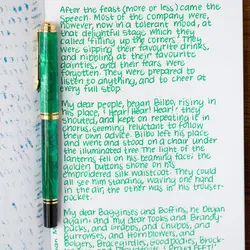 After the feast (more or less) came the
Speech. Most of the company were,
however, now in a tolerant mood, at
that delightful stage which they
called 'filling up the corners'. They
were sipping their favourite drinks,
and nibbling at their favourite
dainties, and their fears were
forgotten. They were prepared to
listen to anything, and to cheer at
every full stop.
My dear people, began Bilbo, rising in
his place. 'Hear! Hear! Hear!' they
shouted, and kept on repeating it in
chorus, seeming reluctant to follow
their own advice. Bilbo left his place
and went and stood on a chair under
the illuminated tree. The light of the
lanterns fell on his beaming face; the
golden buttons shone on his
embroidered silk waistcoat. They could
all see him standing, waving one hand
in the air, the other was in his trouser-
pocket.
My dear Bagginses and Boffins, he began
again; and my dear Tooks and Brandy-
bucks, and Grubbs, and Chubbs, and
Burrowses, and Hornblowers, and
Bolgers, Bracegirdles, Goodbodies, Brock-